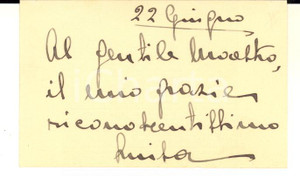 22 Giugno
Al gentile Maestro,
il mio grazie
riconoscentissimo